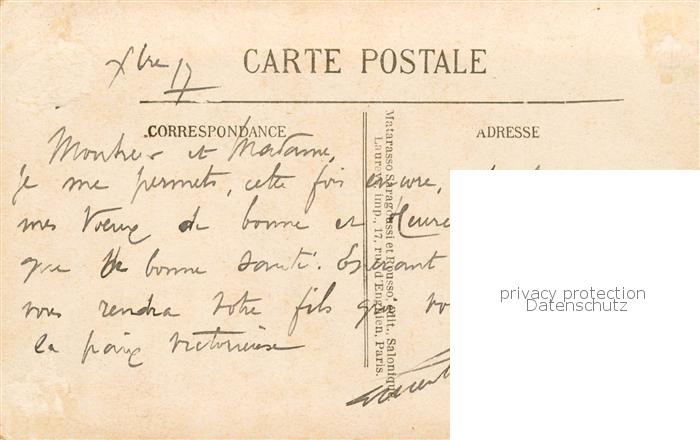 Xbre 17
CARTE POSTALE
CORRESPONDANCE
ADRESSE
Monsieur et Madame,
je me permets, cette fois encore,
mes voeux de bonne et Heure
que de bonne santé. Espérant
vous rendra votre fils que vo
la paix victorieuse
Matarasso Saragoussi et Rousso, édit., Salonique
Laure imp., 17, rue d'Enghien, Paris.
privacy protection
Datenschutz